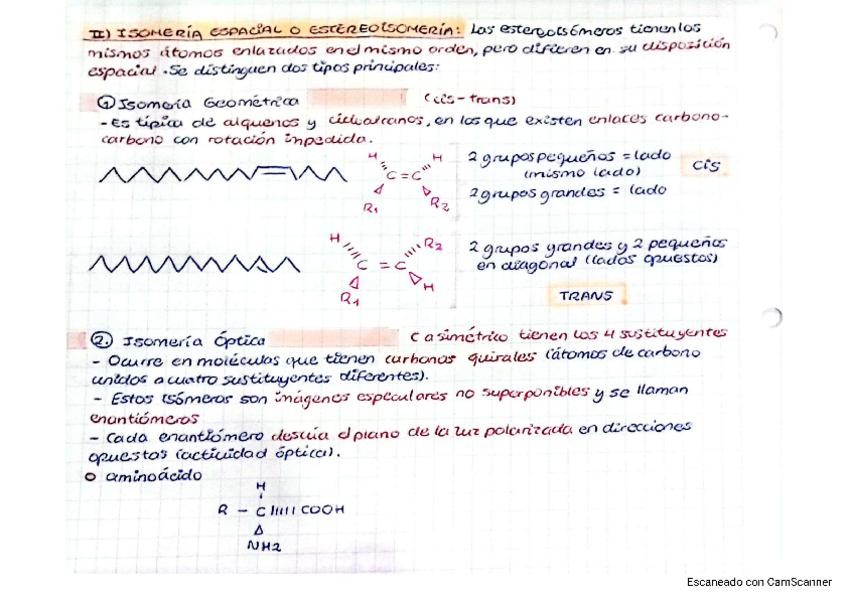 II) ISOMERÍA ESPACIAL O ESTEREOISOMERÍA: Los estereoisómeros tienen los
mismos átomos enlazados en el mismo orden, pero difieren en su disposición
espacial. Se distinguen dos tipos principales:
① Isomería Geométrica (cis-trans)
- Es típica de alquenos y cicloalcanos, en los que existen enlaces carbono-
carbono con rotación impedida.
H H
C = C
R1 R2
2 grupos pequeños = lado
(mismo lado)
2 grupos grandes = lado
Cis
H R2
C = C
R1 H
2 grupos grandes y 2 pequeños
en diagonal (lados opuestos)
TRANS
②. Isomería Óptica C asimétrico tienen los 4 sustituyentes
- Ocurre en moléculas que tienen carbonos quirales (átomos de carbono
unidos a cuatro sustituyentes diferentes).
- Estos isómeros son imágenes especulares no superponibles y se llaman
enantiómeros
- Cada enantiómero desvía el plano de la luz polarizada en direcciones
opuestas (actividad óptica).
o aminoácido
H
R - C COOH
NH2
Escaneado con CamScanner